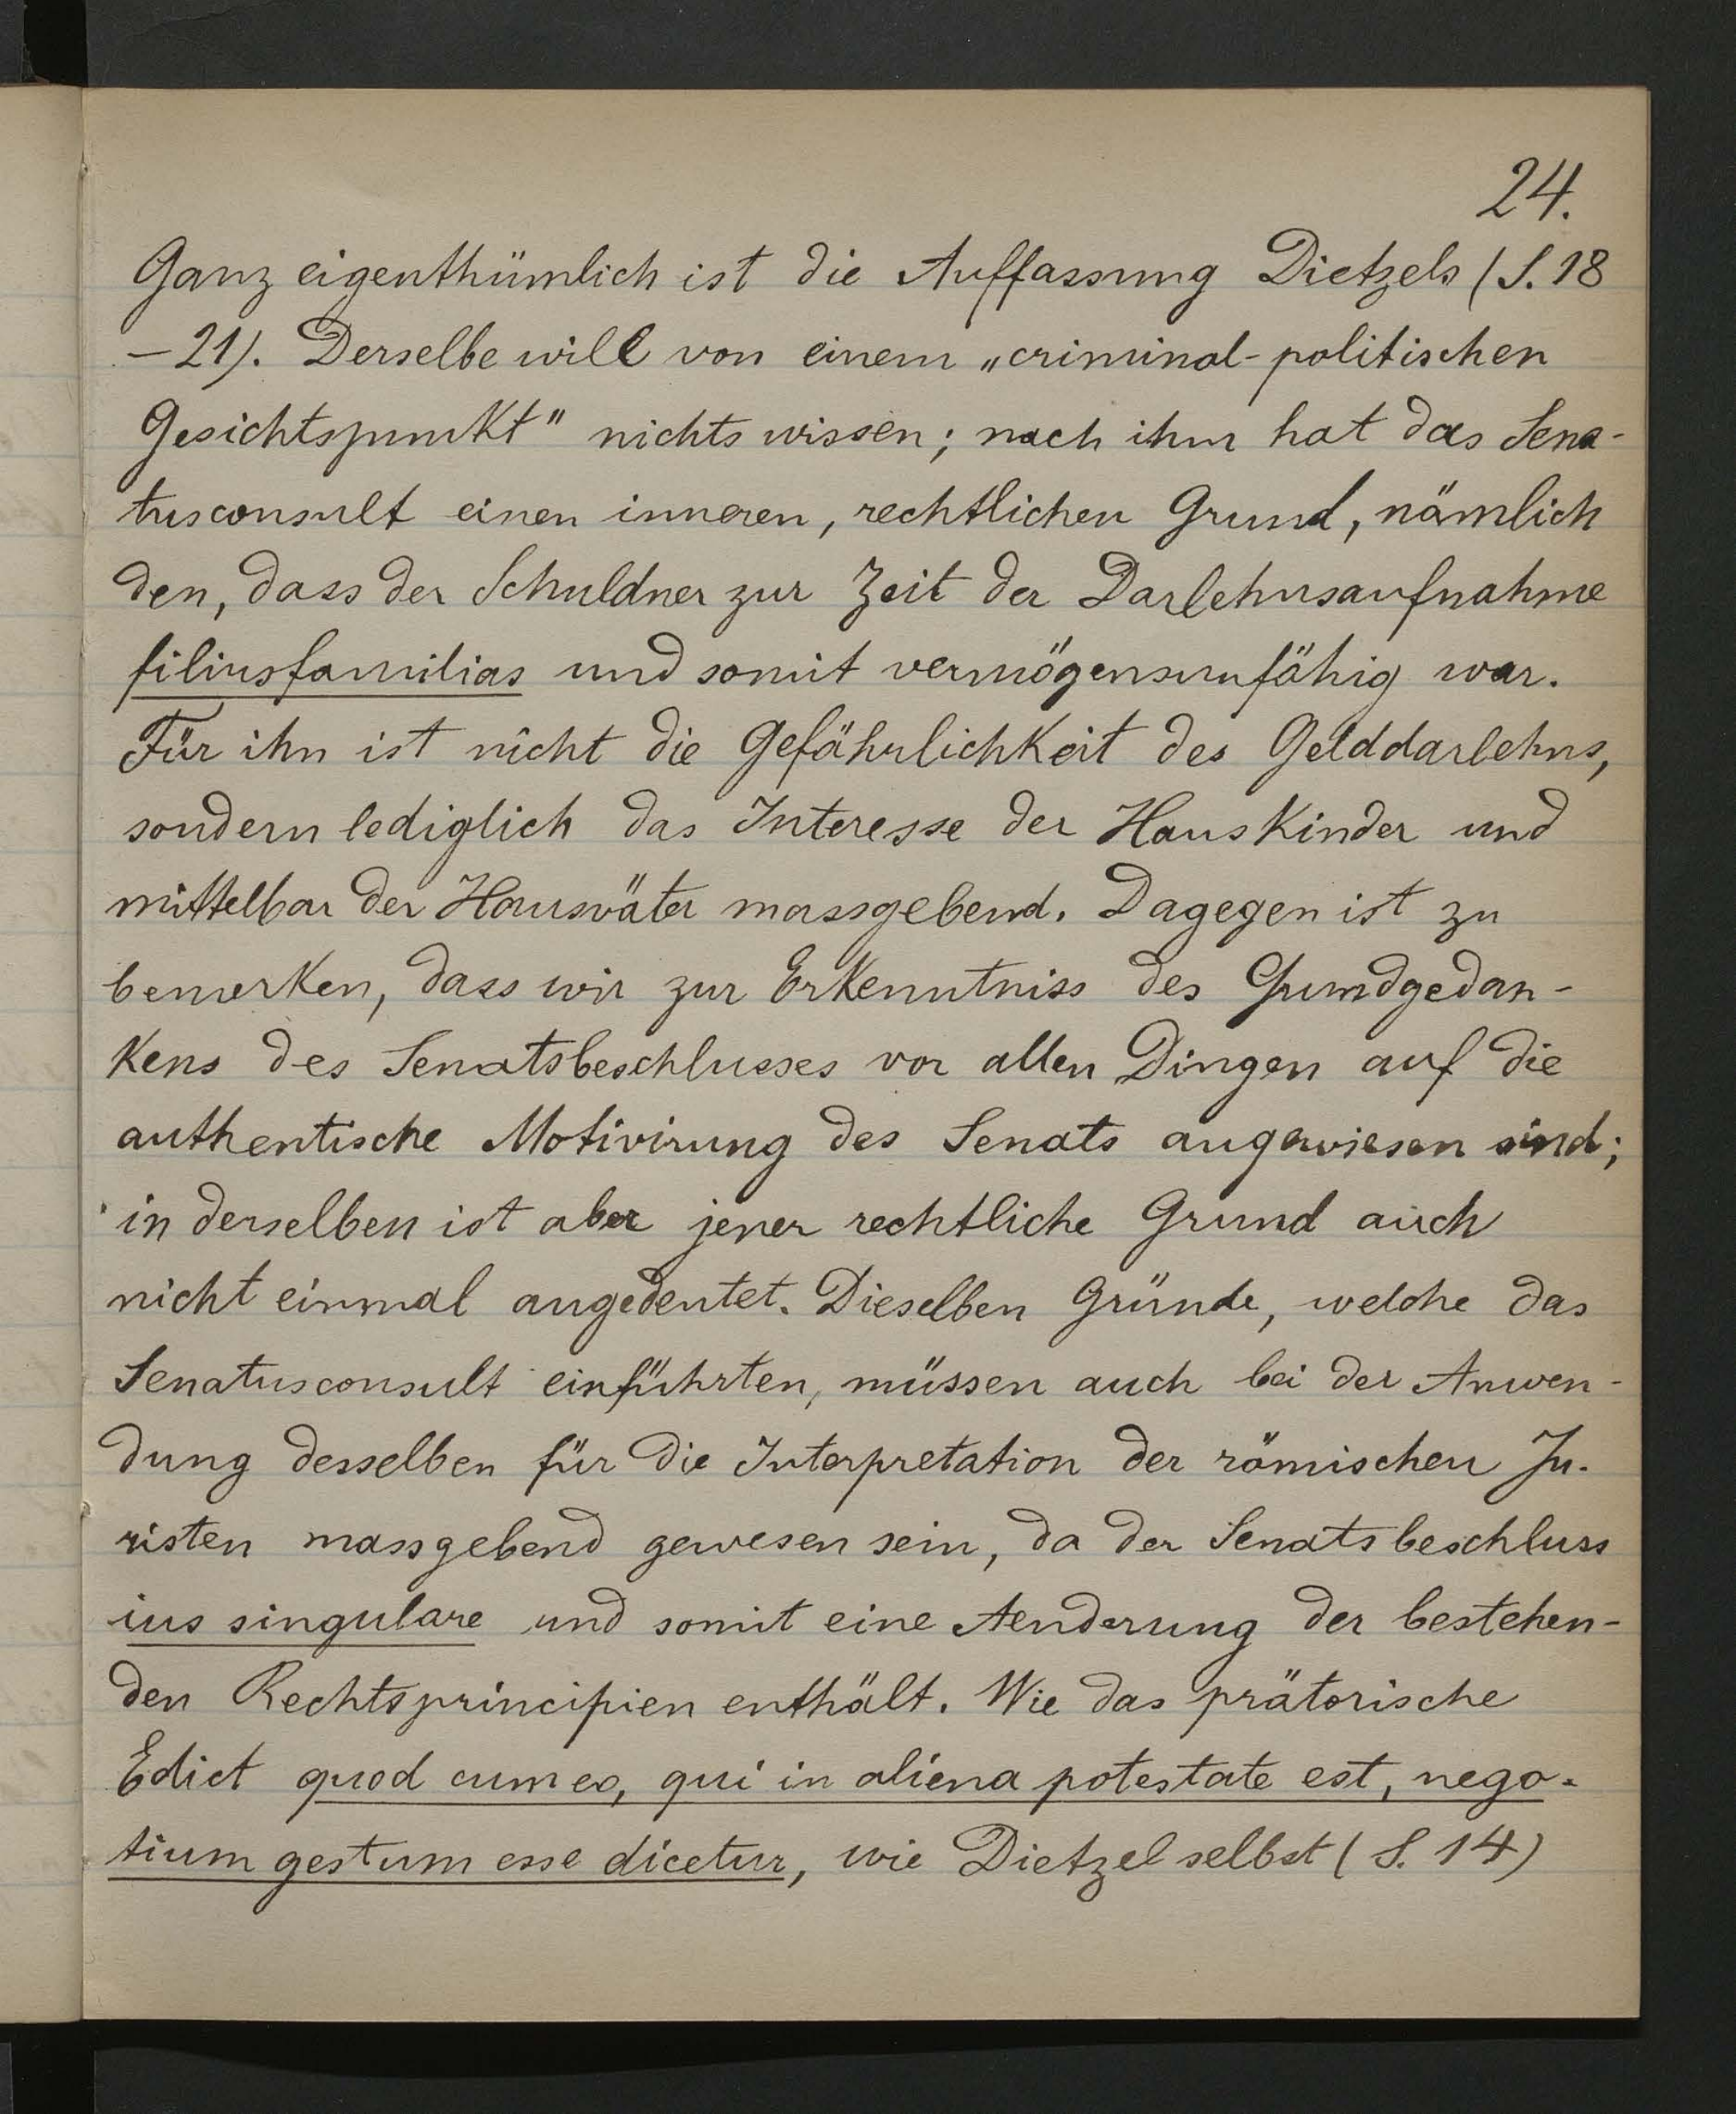 24.
Ganz eigenthümlich ist die Auffassung Dietzels (S. 18
–21). Derselbe will von einem „criminal-politischen
Gesichtspunkt" nichts wissen; nach ihm hat das Sena-
tusconsult einen inneren, rechtlichen Grund, nämlich
den, dass der Schuldner zur Zeit der Darlehnsaufnahme
filiusfamilias und somit vermögensunfähig war.
Für ihn ist nicht die Gefährlichkeit des Gelddarlehns,
sondern lediglich das Interesse der Hauskinder und
mittelbar der Hausväter massgebend. Dagegen ist zu
bemerken, dass wir zur Erkenntniss des Grundgedan-
kens des Senatsbeschlusses vor allen Dingen auf die
authentische Motivirung des Senats angewiesen sind;
in derselben ist aber jener rechtliche Grund auch
nicht einmal angedeutet. Dieselben Gründe, welche das
Senatusconsult einführten, müssen auch bei der Anwen-
dung desselben für die Interpretation der römischen Ju-
risten massgebend gewesen sein, da der Senatsbeschluss
ius singulare und somit eine Aenderung der bestehen-
den Rechtsprincipien enthält. Wie das prätorische
Edict quod cum eo, qui in aliena potestate est, nego-
tium gestum esse dicetur, wie Dietzel selbst (S. 14)